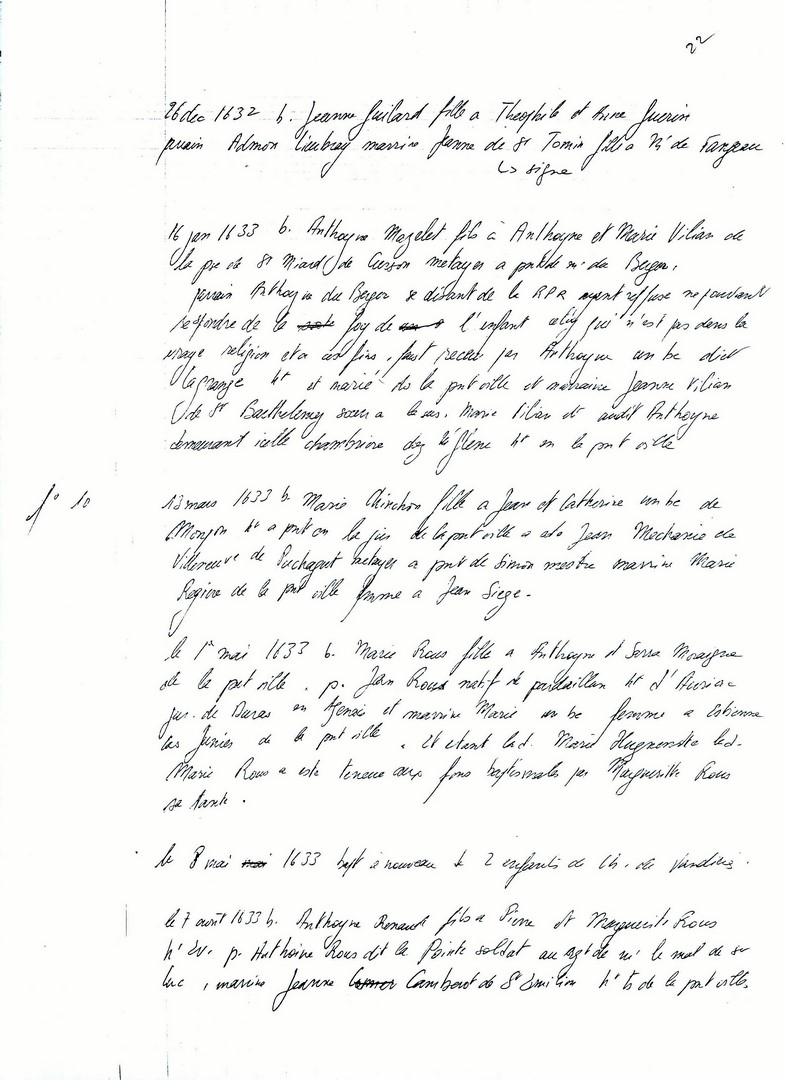 22
26 dec 1632 b. Jeanne Guilard fille a Theophile et Anne Guerin
parain Admon marrine Jeanne de St Tomin fille a Mr de Fanjeau
↳ signe
16 jan 1633 b. Anthoyne Mazelet fils à Anthoyne et Marie Vilian de
la pse de St Miard de Cusson metayer a pnt de mr du Beyer,
parain Anthoyne du Beyer se disant de la RPR ayant reffuse ne pouvant
respondre de la foy de l'enfant celuy qui n'est pas dans la
vraye religion et a ces fins, fust receu par Anthoyne un be dict
lagrange ht et marié ds la pnt ville et marraine Jeanne Vilian
de St Barthelemy soeur a Marie Vilian et audit Anthoyne
demeurant icelle chambriere chez ht en la pnt ville
f° 10
13 mars 1633 b. Marie Chinchon fille a Jean et Catherine un be de
Monjon ht a pnt en la jur. de la pnt ville a este Jean Mechanie de
Villeneuve de Puchagut metayer a pnt de Simon mestre marrine Marie
Regiere de la pnt ville femme a Jean Siege.
le 1er mai 1633 b. Marie Rous fille a Anthoyne et Sarra
de la pnt ville. p. Jean Roux natif de pardaillan ht d'Auriac
jur. de Duras en Agenais et marrine Marie un be femme a Estienne
las Junies de la pnt ville. Et etant lad. Marie Hugnenotte lad.
Marie Rous a este teneue aux fons baptismales par Marguerite Rous
sa tante.
le 8 mai 1633 bapt à nouveau de 2 enfants de Ch. de
le 7 août 1633 b. Anthoyne Renaud fils a Pierre et Marguerite Rous
ht p. Anthoine Rous dit la Pointe soldat au rgt de mr le mal de St
Luc, marine Jeanne Camberot de St Emilion ht de la pnt ville.